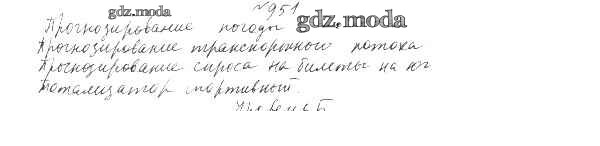 №951
gdz.moda
Прогнозирование погоды
gdz.moda
Прогнозирование транспортного потока
Прогнозирование спроса на билеты на юг
Тотализатор спортивный.